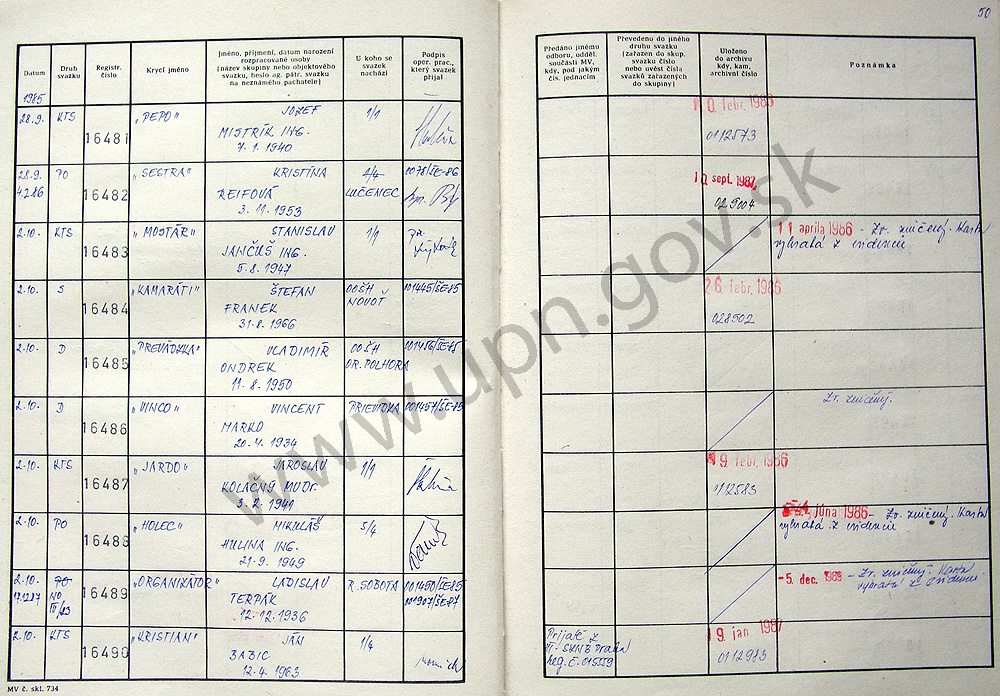 50
Datum
Druh svazku
Registr. číslo
Krycí jméno
Jméno, příjmení, datum narození rozpracované osoby (název skupiny nebo objektového svazku, heslo ag. pátr. svazku na neznámého pachatele)
U koho se svazek nachází
Podpis oper. prac., který svazek přijal
Předáno jinému odboru, odděl. součásti MV, kdy, pod jakým čís. jednacím
Převedeno do jiného druhu svazku (zařazen do skup. svazku číslo nebo uvést čísla svazků zařazených do skupiny)
Uloženo do archivu kdy, kam, archivní číslo
Poznámka
1985
28.9. KTS 16481 "PEPO" JOZEF 1/1
MISTRÍK ING.
7.1.1940
0. febr. 1986
0112573
28.9. PO 16482 "SESTRA" KRISTÍNA 0078/ŠE-86
4.2.86 REIFOVÁ LUČENEC
3.11.1953
10. sept. 1987
029004
2.10. KTS 16483 "MOSTÁR" STANISLAV 1/1
JANČUŠ ING.
5.8.1947
11 apríla 1986 - Zv. zničený. Karta
vybratá z evidencie
2.10. S 16484 "KAMARÁTI" ŠTEFAN OOŠH 001445/ŠE-85
FRANEK NOVOŤ
31.8.1966
26. febr. 1986
028502
2.10. D 16485 "PREVÁDZKA" VLADIMÍR OOŠH 001456/ŠE-85
ONDREK OR. POLHORA
11.8.1950
2.10. D 16486 "VINCO" VINCENT PRIEVIDZA 001457/ŠE-85
MARKO
20.4.1934
Zv. zničený.
2.10. KTS 16487 "JARDO" JAROSLAV 1/1
KOLAČNÝ MUDr.
3.2.1941
9. febr. 1986
0112583
2.10. PO 16488 "HOLEC" MIKULÁŠ 5/4
HULINA ING.
21.9.1949
júna 1986 - Zv. zničený. Karta
vybratá z evidencie
2.10. PO 16489 "ORGANIZÁTOR" LADISLAV R. SOBOTA 001450/ŠE85
17.12.87 NO TERPÁK 001907/ŠE-87
12.12.1936
-5. dec. 1989 - Zv. zničený. Karta
vybratá z evidencie
2.10. KTS 16490 "KRISTIAN" JÁN 1/4
BABIC
12.4.1963
Prijaté z
-SKNB Praha
Reg. č. 015559
19. jan. 1987
0112983
MV č. skl. 734
www.upn.gov.sk